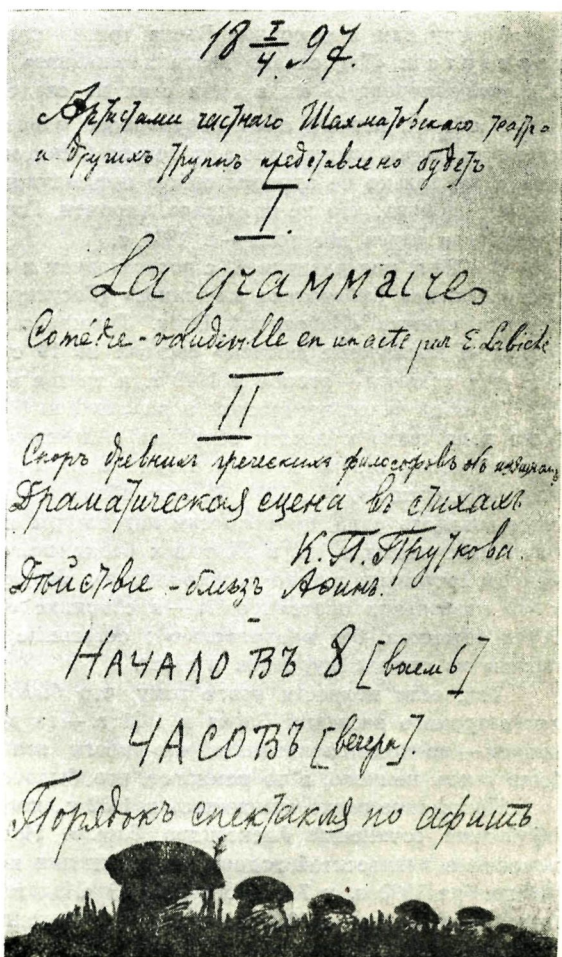 18 I/4 97.
Артистами частнаго Шахматовскаго театра
и другихъ труппъ представлено будетъ
I.
La grammaire
Comédie-vaudeville en un acte par E. Labiche
II
Споръ древнихъ греческихъ философовъ объ изящномъ
Драматическая сцена въ стихахъ
К. П. Пруткова.
Дѣйствіе - близъ Аѳинъ.
НАЧАЛО ВЪ 8 [восемь]
ЧАСОВЪ [вечера].
Порядокъ спектакля по афишѣ